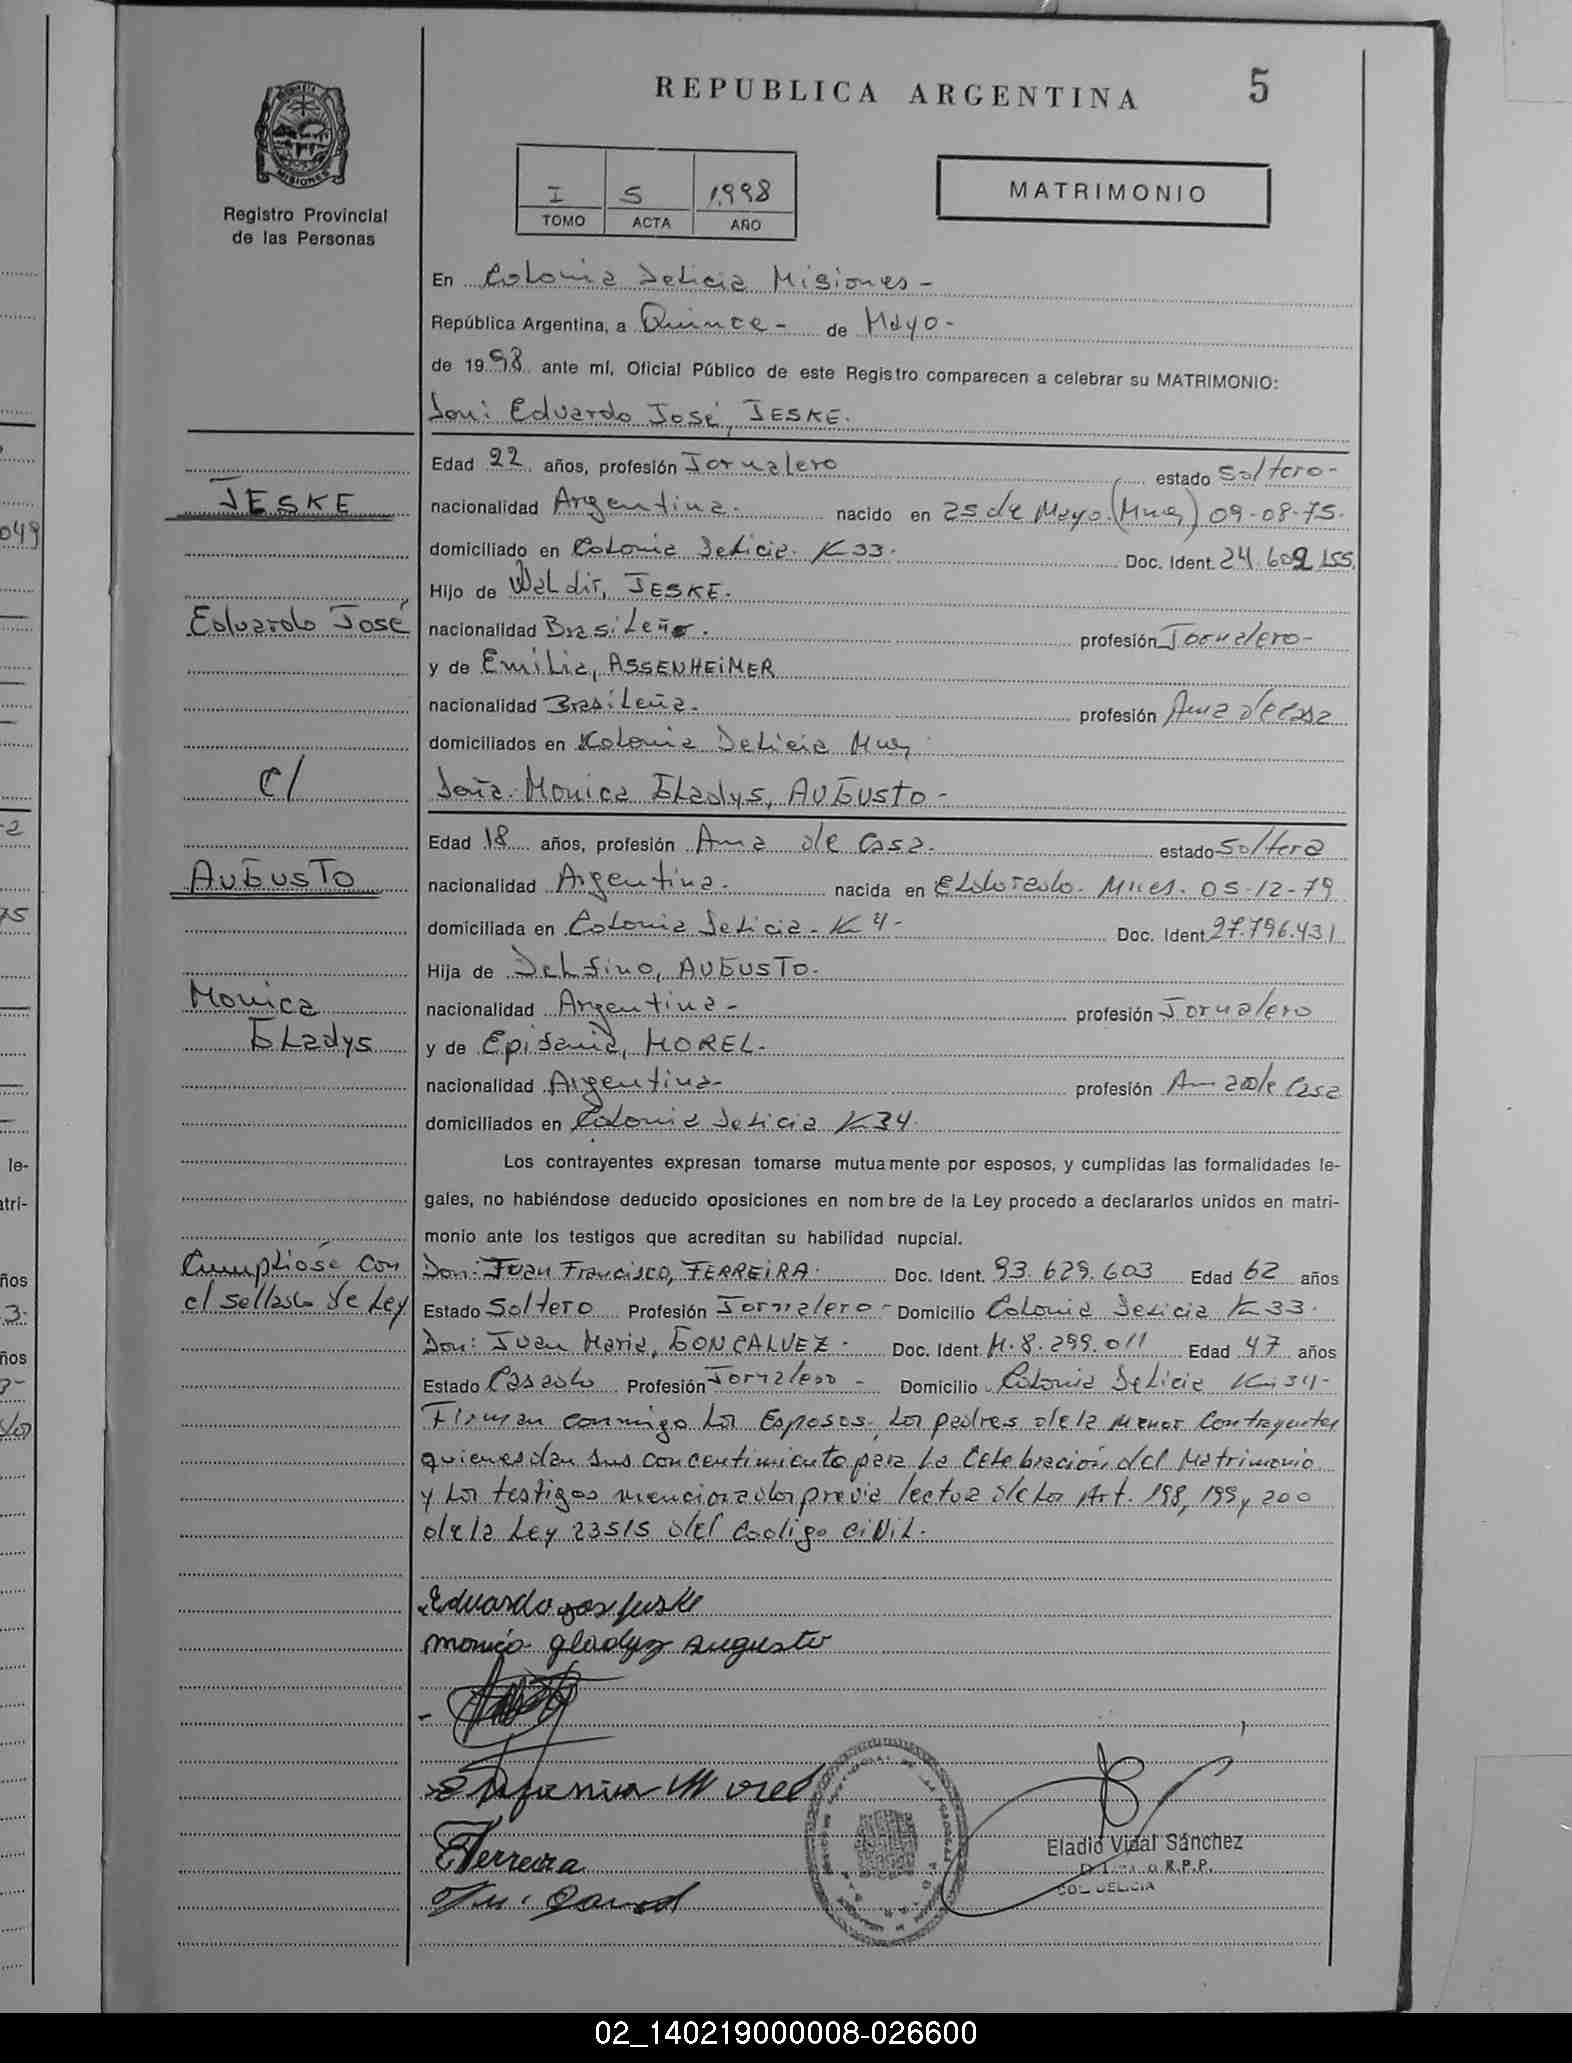 REPUBLICA ARGENTINA
5
MISIONES
Registro Provincial
de las Personas
I 5 1998
TOMO ACTA AÑO
MATRIMONIO
En Colonia Delicia Misiones -
República Argentina, a Quince - de Mayo -
de 1998 ante mí, Oficial Público de este Registro comparecen a celebrar su MATRIMONIO:
Don: Eduardo José, JESKE.
Edad 22 años, profesión Jornalero estado Soltero -
JESKE
nacionalidad Argentina. nacido en 25 de Mayo (Mnes) 09-08-75.
domiciliado en Colonia Delicia. K 33. Doc. Ident. 24.602.155.
Hijo de Waldir, JESKE.
Eduardo José
nacionalidad Brasileño. profesión Jornalero -
y de Emilia, ASSENHEIMER
nacionalidad Brasileña. profesión Ama de casa
domiciliados en Kolonia Delicia Mnes
c/
Doña: Monica Gladys, AUGUSTO -
Edad 18 años, profesión Ama de Casa. estado Soltera
AUGUSTO
nacionalidad Argentina. nacida en Eldorado. Mnes. 05-12-79
domiciliada en Colonia Delicia - K 4 - Doc. Ident. 27.796.431
Hija de Delfino, AUGUSTO.
Monica
nacionalidad Argentina - profesión Jornalero
Gladys
y de Epifania, MOREL.
nacionalidad Argentina - profesión Ama de Casa
domiciliados en Colonia Delicia K 34.
Los contrayentes expresan tomarse mutuamente por esposos, y cumplidas las formalidades le-
gales, no habiéndose deducido oposiciones en nombre de la Ley procedo a declararlos unidos en matri-
monio ante los testigos que acreditan su habilidad nupcial.
Cumplióse con
el sellado de Ley
Don: Juan Francisco, FERREIRA. Doc. Ident. 93.629.603 Edad 62 años
Estado Soltero Profesión Jornalero - Domicilio Colonia Delicia K 33.
Don: Juan Maria, GONCALVEZ - Doc. Ident. M.8.299.011 Edad 47 años
Estado Casado Profesión Jornalero - Domicilio Colonia Delicia Km 34 -
Firman conmigo los Esposos, los padres de la menor Contrayentes
quienes dan sus concentimiento para la Celebración del Matrimonio
y los testigos mencionados previa lectua de los Art. 198, 199 y 200
de la Ley 23515 del Codigo CiViL.
Eduardo jose jeske
monica gladyz augusto
Epifania Morel
Ferreira
Eladio Vidal Sánchez
R.P.P.
COL. DELICIA
02_140219000008-026600